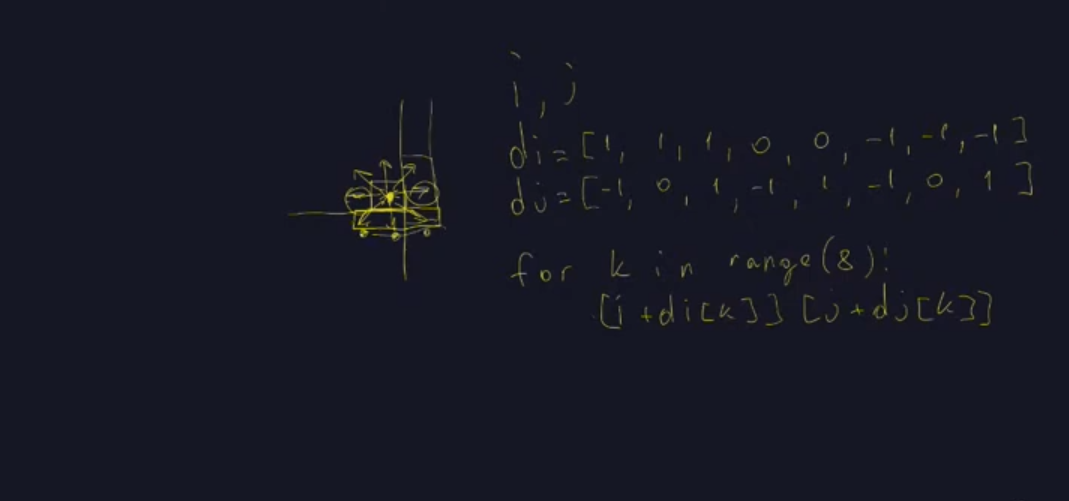 i, j
di=[1, 1, 1, 0, 0, -1, -1, -1]
dj=[-1, 0, 1, -1, 1, -1, 0, 1]
for k in range(8):
[i+di[k]][j+dj[k]]